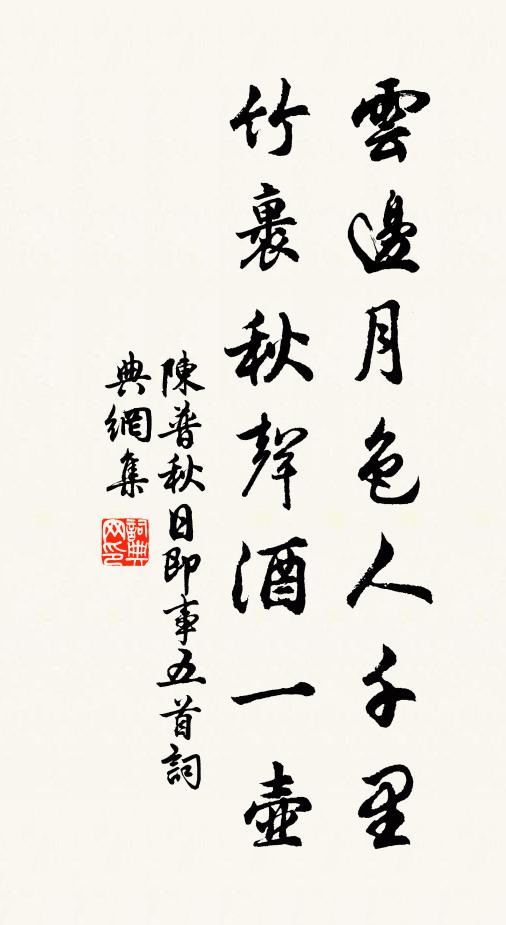 雲邊月色人千里
竹裏秋聲酒一壺
陳普秋日即事五首詞
典網集
詞典网印